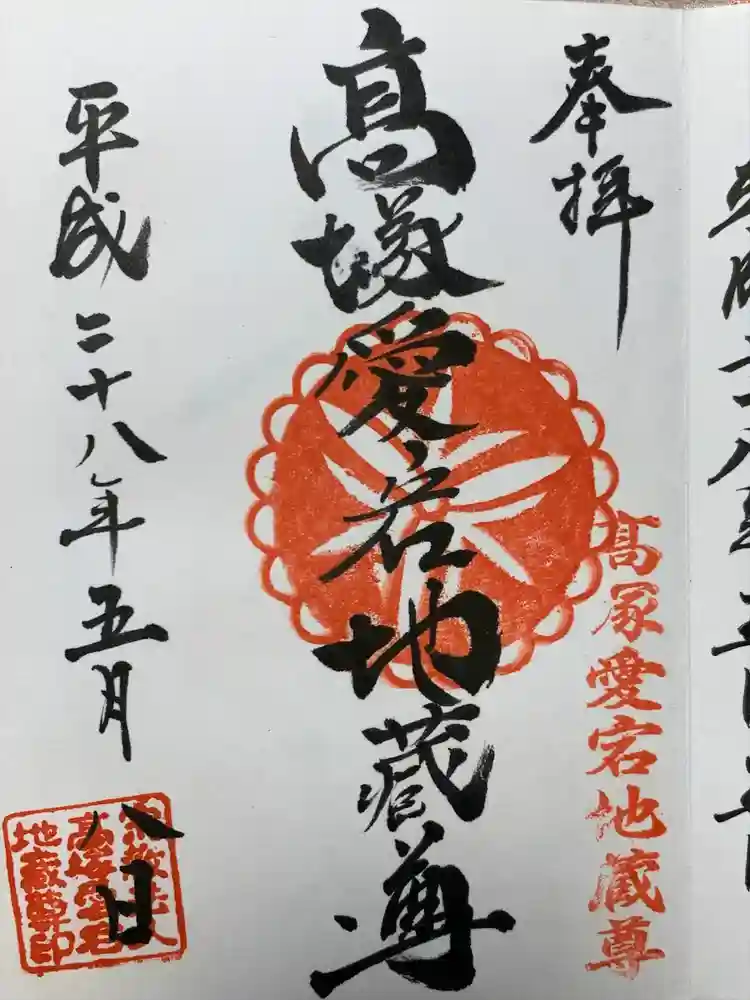 奉拝
高塚愛宕地蔵尊
高塚愛宕地蔵尊
平成二十八年五月
八日
宗教法人
高塚愛宕
地蔵尊印